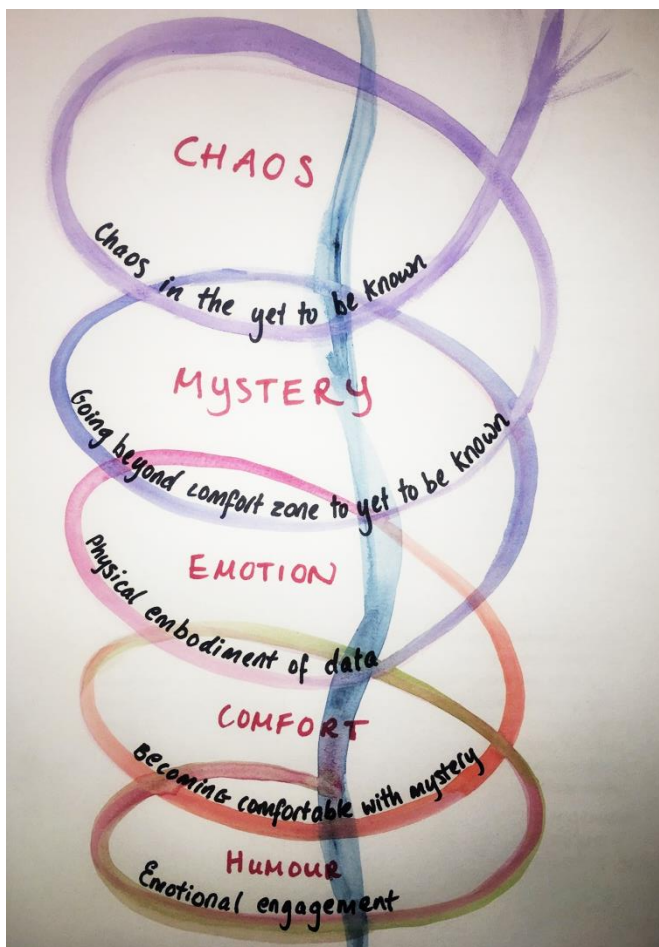 CHAOS
Chaos in the yet to be known
MYSTERY
Going beyond comfort zone to yet to be known
EMOTION
Physical embodiment of data
COMFORT
Becoming comfortable with mystery
HUMOUR
Emotional engagement